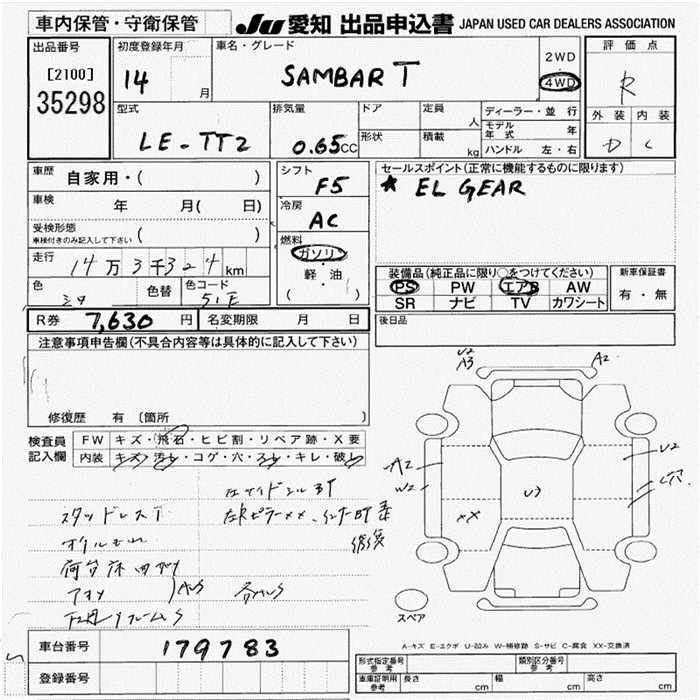 車内保管・守衛保管
JU 愛知 出品申込書 JAPAN USED CAR DEALERS ASSOCIATION
出品番号
[2100]
35298
初度登録年月
14 月
車名・グレード
SAMBAR T
2WD
4WD
評価点
R
外装 内装
D C
型式
LE-TT2
排気量
0.65CC
ドア
形状
定員 人
積載 kg
ディーラー・並行
モデル年式 年
ハンドル 左・右
車歴 自家用・( )
車検 年 月( 日)
受検形態
車検付きのみ記入して下さい ( )
走行 14万3千324km
色 シロ 色替 色コード 51E
シフト F5
冷房 AC
燃料
ガソリン
軽・油
( )
セールスポイント(正常に機能するものに限ります)
★ EL GEAR
装備品(純正品に限り○をつけてください)
PS PW エアB AW
SR ナビ TV カワシート
新車保証書
有・無
R券 7,630円 名変期限 月 日
後日品
注意事項申告欄(不具合内容等は具体的に記入して下さい)
修復歴 有 〔箇所
検査員記入欄
FW キズ・飛石・ヒビ割・リペア跡・X要
内装 キズ・汚レ・コゲ・穴・スレ・キレ・破レ
左サイドシルBT
スタッドレスT
修復
U2
A3
A2
A2
W2
U2
U3
XX
C穴
スペア
A-キズ E-エクボ U-凹み W-補修跡 S-サビ C-腐食 XX-交換済
車台番号 179783
登録番号
形式指定番号 参考
類別区分番号 参考
車庫証明用 参考 長さ cm 幅 cm 高さ cm